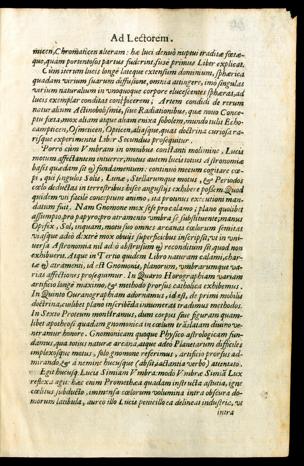 Ad Lectorem.
micen, Chromaticen alteram: hæ luci denuò nuptui traditæ fœtæ-
que, quam portentosos partus fuderint, fusè primus Liber explicat.
Cùm iterum lucis longè latéque extensum dominium, sphæricâ
quadam virium suarum diffusione, omnia attingere, imò singulas
verùm naturalium in vnoquoque corpore elucescentes sphæras, ad
lucis exemplar conditas conspicerem, Artem condidi de rerum
naturalium Actinobolismis, siue Radiationibus, quæ nouo Conce-
ptu fœta, mox aliam atque aliam enixa sobolem, mundo tulit Echo-
campticen, Osmeticen, Opticen, aliasque, quas doctrina curiosa ra-
risque experimentis Liber Secundus prosequitur.
Porrò cùm Vmbram in omnibus constanti molimine, Lucis
motum affectantem intuerer, motus autem lucis totius Astronomiæ
basis quædam sit & fundamentum: continuò mecum cogitare cœ-
pi, qui singulos Solis, Lunæ, Stellarumque motus, & Periodos
cœlo deductas in terrestribus hisce angustijs exhibere possem. Quod
quidem vti facilè conceptum animo, ita protinus executioni man-
datum fuit. Nam Gnomone mox styli pro calamo, plano quolibet
assumpto, pro papyro pro atramento vmbra se substituente, manus
Opifex, Sol, inquam, motus suo omnes arcanas cœlorum semitas
viasque adò dextrè mox obuijs superficiebus inscripsit, vt in vni-
uersa Astronomia nil ad.ò abstrusum & reconditum sit quod non
exhibuerit. Atque in Tertio quidem Libro naturam calami, char-
tæ & atramenti, id est Gnomonis, planorum, vmbrarumque va-
rias affectiones prosequimur. In Quarto Horographiam variam
artificio longè maximo, & methodo prorsus catholicâ exhibemus.
In Quinto Ouranographiam adornamus, id est, de primi mobilis
doctrina, cœlitus plano inscribenda innumeras tradimus methodos.
In Sexto Proteum monstramus, dum corpus siue figuram quam-
libet apotheosi quadam gnomonica in cœlum tralatam diuino ve-
neramur honore. Gnomonicam quoque Physico astrologicam fun-
damus, qua totius naturæ arcana, atque adeò Planetarum difficiles
implexosque motus, solo gnomone referimus, artificio prorsus ad-
mirando & à nemine hucusque (absit iactantia verbo) attentato.
Egit hucusq; Lucis Simiam Vmbra: modò Vmbræ Simia Lux
reflexa agit: hæc enim Prometheâ quadam instructa astutia, igne
cœlitus subducto, immensa cœlorum volumina intra obscura do-
morum latibula, aureo illo Lucis penicillo ea delineat industria, vt
intra